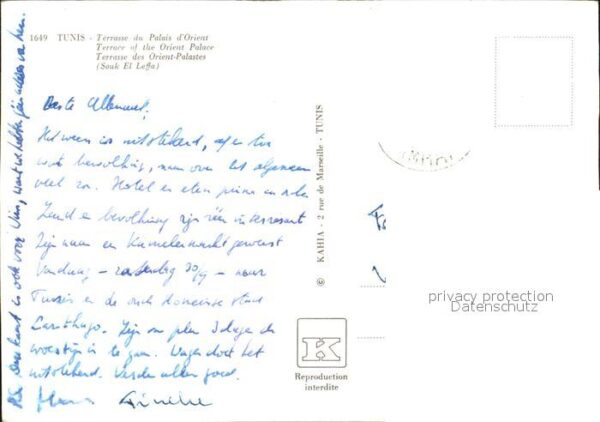 1649 TUNIS - Terrasse du Palais d'Orient
Terrace of the Orient Palace
Terrasse des Orient-Palastes
(Souk El Leffa)
Beste Allemaal,
Het weer is uitstekend, af en toe
wat bewolking, maar over het algemeen
veel zon. Hotel en eten prima in orde.
Land en bevolking zijn interessant
Zijn naar een geweest
Vandaag - zaterdag 30/9 - naar
Tunis en de oude Romeinse stad
Carthago. Zijn van plan 3 dagen de
woestijn in te gaan. Wagen doet het
uitstekend. Verder alles goed.
Hans
Deze kaart is ook voor want we hebben geen adres van hen.
© KAHIA - 2 rue de Marseille - TUNIS
K
Reproduction
interdite
privacy protection
Datenschutz